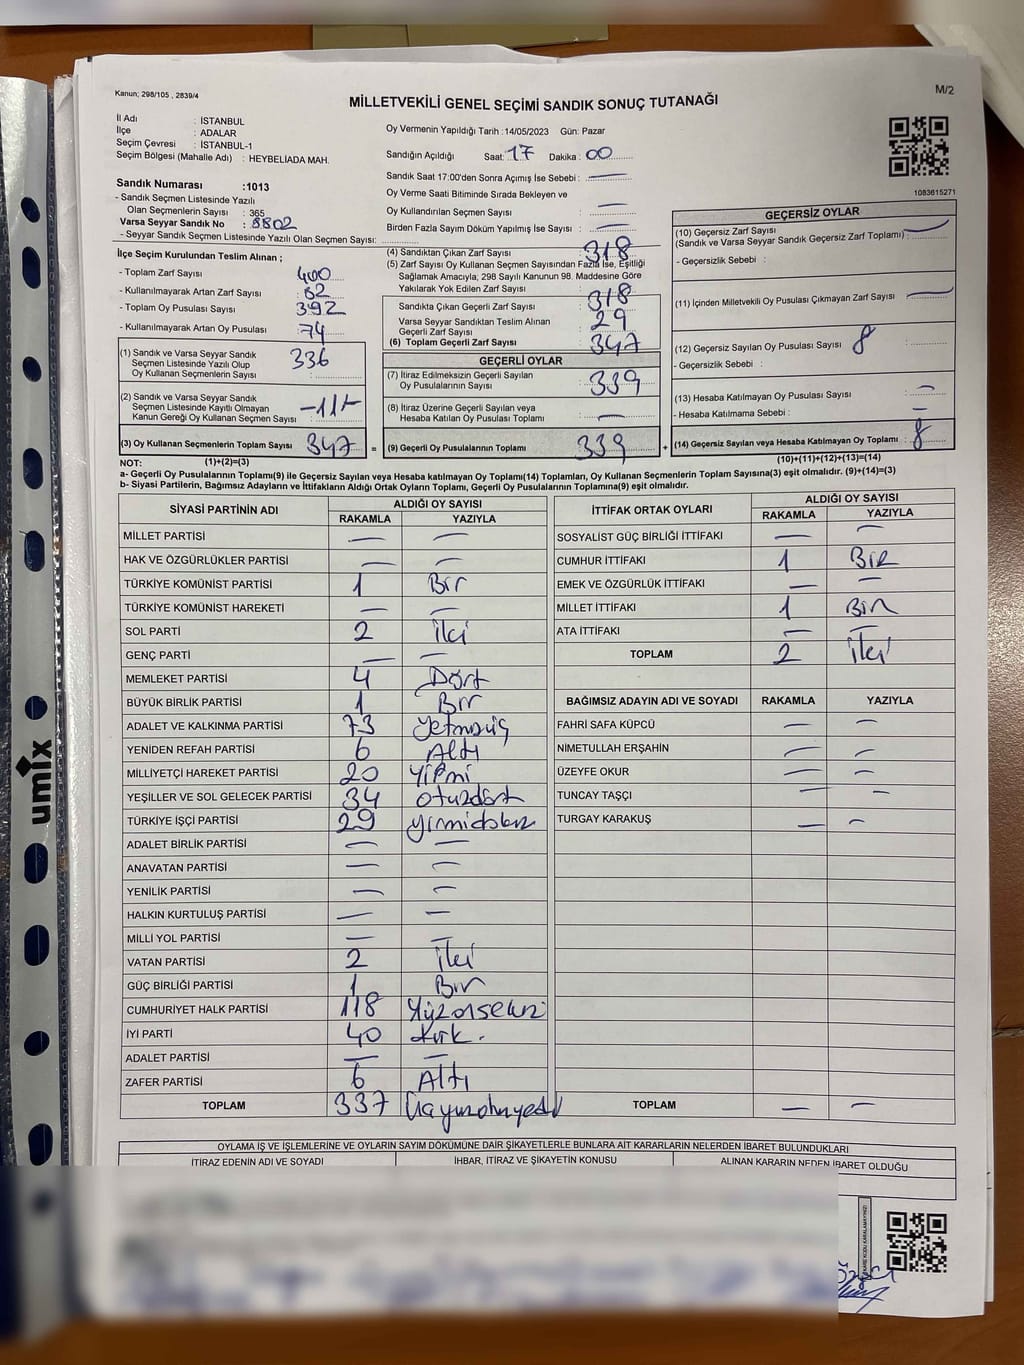 Kanun; 298/105 , 2839/4
M/2
MİLLETVEKİLİ GENEL SEÇİMİ SANDIK SONUÇ TUTANAĞI
İl Adı : İSTANBUL
İlçe : ADALAR
Seçim Çevresi : İSTANBUL-1
Seçim Bölgesi (Mahalle Adı) : HEYBELİADA MAH.
Sandık Numarası :1013
- Sandık Seçmen Listesinde Yazılı
Olan Seçmenlerin Sayısı : 365
Varsa Seyyar Sandık No : 8802
- Seyyar Sandık Seçmen Listesinde Yazılı Olan Seçmen Sayısı:
Oy Vermenin Yapıldığı Tarih :14/05/2023 Gün: Pazar
Sandığın Açıldığı Saat: 17 Dakika : 00
Sandık Saat 17:00'den Sonra Açımış İse Sebebi : —
Oy Verme Saati Bitiminde Sırada Bekleyen ve
Oy Kullandırılan Seçmen Sayısı : —
Birden Fazla Sayım Döküm Yapılmış İse Sayısı : —
1083615271
İlçe Seçim Kurulundan Teslim Alınan ;
- Toplam Zarf Sayısı : 400
- Kullanılmayarak Artan Zarf Sayısı : 82
- Toplam Oy Pusulası Sayısı : 392
- Kullanılmayarak Artan Oy Pusulası : 74
(1) Sandık ve Varsa Seyyar Sandık
Seçmen Listesinde Yazılı Olup
Oy Kullanan Seçmenlerin Sayısı : 336
(2) Sandık ve Varsa Seyyar Sandık
Seçmen Listesinde Kayıtlı Olmayan
Kanun Gereği Oy Kullanan Seçmen Sayısı : -11-
(3) Oy Kullanan Seçmenlerin Toplam Sayısı : 347 =
(4) Sandıktan Çıkan Zarf Sayısı : 318
(5) Zarf Sayısı Oy Kullanan Seçmen Sayısından Fazla İse, Eşitliği
Sağlamak Amacıyla, 298 Sayılı Kanunun 98. Maddesine Göre
Yakılarak Yok Edilen Zarf Sayısı :
Sandıkta Çıkan Geçerli Zarf Sayısı : 318
Varsa Seyyar Sandıktan Teslim Alınan
Geçerli Zarf Sayısı : 29
(6) Toplam Geçerli Zarf Sayısı : 347
GEÇERLİ OYLAR
(7) İtiraz Edilmeksizin Geçerli Sayılan
Oy Pusulalarının Sayısı : 339
(8) İtiraz Üzerine Geçerli Sayılan veya
Hesaba Katılan Oy Pusulası Toplamı : —
(9) Geçerli Oy Pusulalarının Toplamı : 339 +
GEÇERSİZ OYLAR
(10) Geçersiz Zarf Sayısı
(Sandık ve Varsa Seyyar Sandık Geçersiz Zarf Toplamı) : —
- Geçersizlik Sebebi :
(11) İçinden Milletvekili Oy Pusulası Çıkmayan Zarf Sayısı : —
(12) Geçersiz Sayılan Oy Pusulası Sayısı : 8
- Geçersizlik Sebebi :
(13) Hesaba Katılmayan Oy Pusulası Sayısı : —
- Hesaba Katılmama Sebebi : —
(14) Geçersiz Sayılan veya Hesaba Katılmayan Oy Toplamı : 8
NOT: (1)+(2)=(3)
(10)+(11)+(12)+(13)=(14)
a- Geçerli Oy Pusulalarının Toplamı(9) ile Geçersiz Sayılan veya Hesaba katılmayan Oy Toplamı(14) Toplamları, Oy Kullanan Seçmenlerin Toplam Sayısına(3) eşit olmalıdır. (9)+(14)=(3)
b- Siyasi Partilerin, Bağımsız Adayların ve İttifakların Aldığı Ortak Oyların Toplamı, Geçerli Oy Pusulalarının Toplamına(9) eşit olmalıdır.
SİYASİ PARTİNİN ADI ALDIĞI OY SAYISI
RAKAMLA YAZIYLA
MİLLET PARTİSİ — —
HAK VE ÖZGÜRLÜKLER PARTİSİ — —
TÜRKİYE KOMÜNİST PARTİSİ 1 Bir
TÜRKİYE KOMÜNİST HAREKETİ — —
SOL PARTİ 2 İki
GENÇ PARTİ — —
MEMLEKET PARTİSİ 4 Dört
BÜYÜK BİRLİK PARTİSİ 1 Bir
ADALET VE KALKINMA PARTİSİ 73 Yetmişüç
YENİDEN REFAH PARTİSİ 6 Altı
MİLLİYETÇİ HAREKET PARTİSİ 20 Yirmi
YEŞİLLER VE SOL GELECEK PARTİSİ 34 Otuzdört
TÜRKİYE İŞÇİ PARTİSİ 29 Yirmidokuz
ADALET BİRLİK PARTİSİ — —
ANAVATAN PARTİSİ — —
YENİLİK PARTİSİ — —
HALKIN KURTULUŞ PARTİSİ — —
MİLLİ YOL PARTİSİ — —
VATAN PARTİSİ 2 İki
GÜÇ BİRLİĞİ PARTİSİ 1 Bir
CUMHURİYET HALK PARTİSİ 118 Yüzonsekiz
İYİ PARTİ 40 Kırk.
ADALET PARTİSİ — —
ZAFER PARTİSİ 6 Altı
TOPLAM 337 Üçyüzotuzyedi
İTTİFAK ORTAK OYLARI ALDIĞI OY SAYISI
RAKAMLA YAZIYLA
SOSYALİST GÜÇ BİRLİĞİ İTTİFAKI — —
CUMHUR İTTİFAKI 1 Bir
EMEK VE ÖZGÜRLÜK İTTİFAKI — —
MİLLET İTTİFAKI 1 Bir
ATA İTTİFAKI — —
TOPLAM 2 İki
BAĞIMSIZ ADAYIN ADI VE SOYADI RAKAMLA YAZIYLA
FAHRİ SAFA KÜPCÜ — —
NİMETULLAH ERŞAHİN — —
ÜZEYFE OKUR — —
TUNCAY TAŞÇI — —
TURGAY KARAKUŞ — —
TOPLAM — —
OYLAMA İŞ VE İŞLEMLERİNE VE OYLARIN SAYIM DÖKÜMÜNE DAİR ŞİKAYETLERLE BUNLARA AİT KARARLARIN NELERDEN İBARET BULUNDUKLARI
İTİRAZ EDENİN ADI VE SOYADI İHBAR, İTİRAZ VE ŞİKAYETİN KONUSU ALINAN KARARIN NEDEN İBARET OLDUĞU
KARE KODU KARALAMAYINIZ!
umix